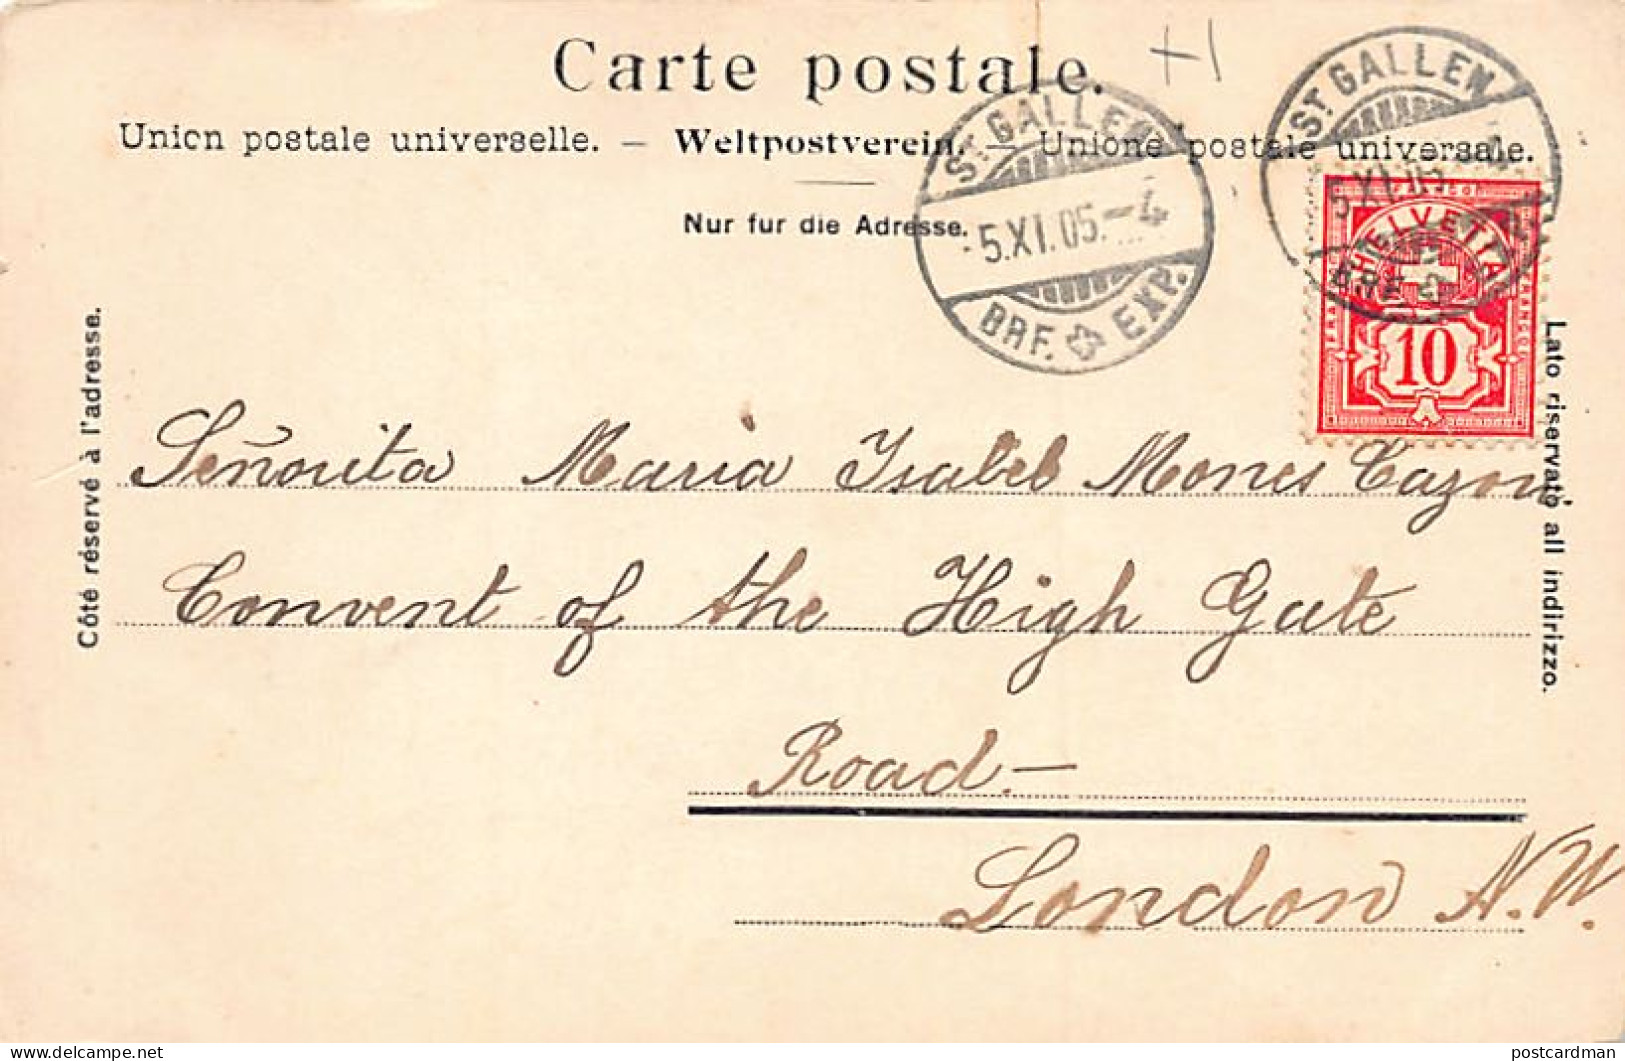 Carte postale.
Union postale universelle. — Weltpostverein. — Unione postale universale.
Nur fur die Adresse.
ST. GALLEN
5.XI.05.—4
BRF. EXP.
ST. GALLEN
5.XI.05.—4
BRF.
FRANCO
HELVETIA
FRANCO
10
Côté réservé à l'adresse.
Lato riservato all indirizzo.
Señorita Maria Isabel Mones Cazon
Convent of the High Gate
Road.—
London N.W.
postcardman